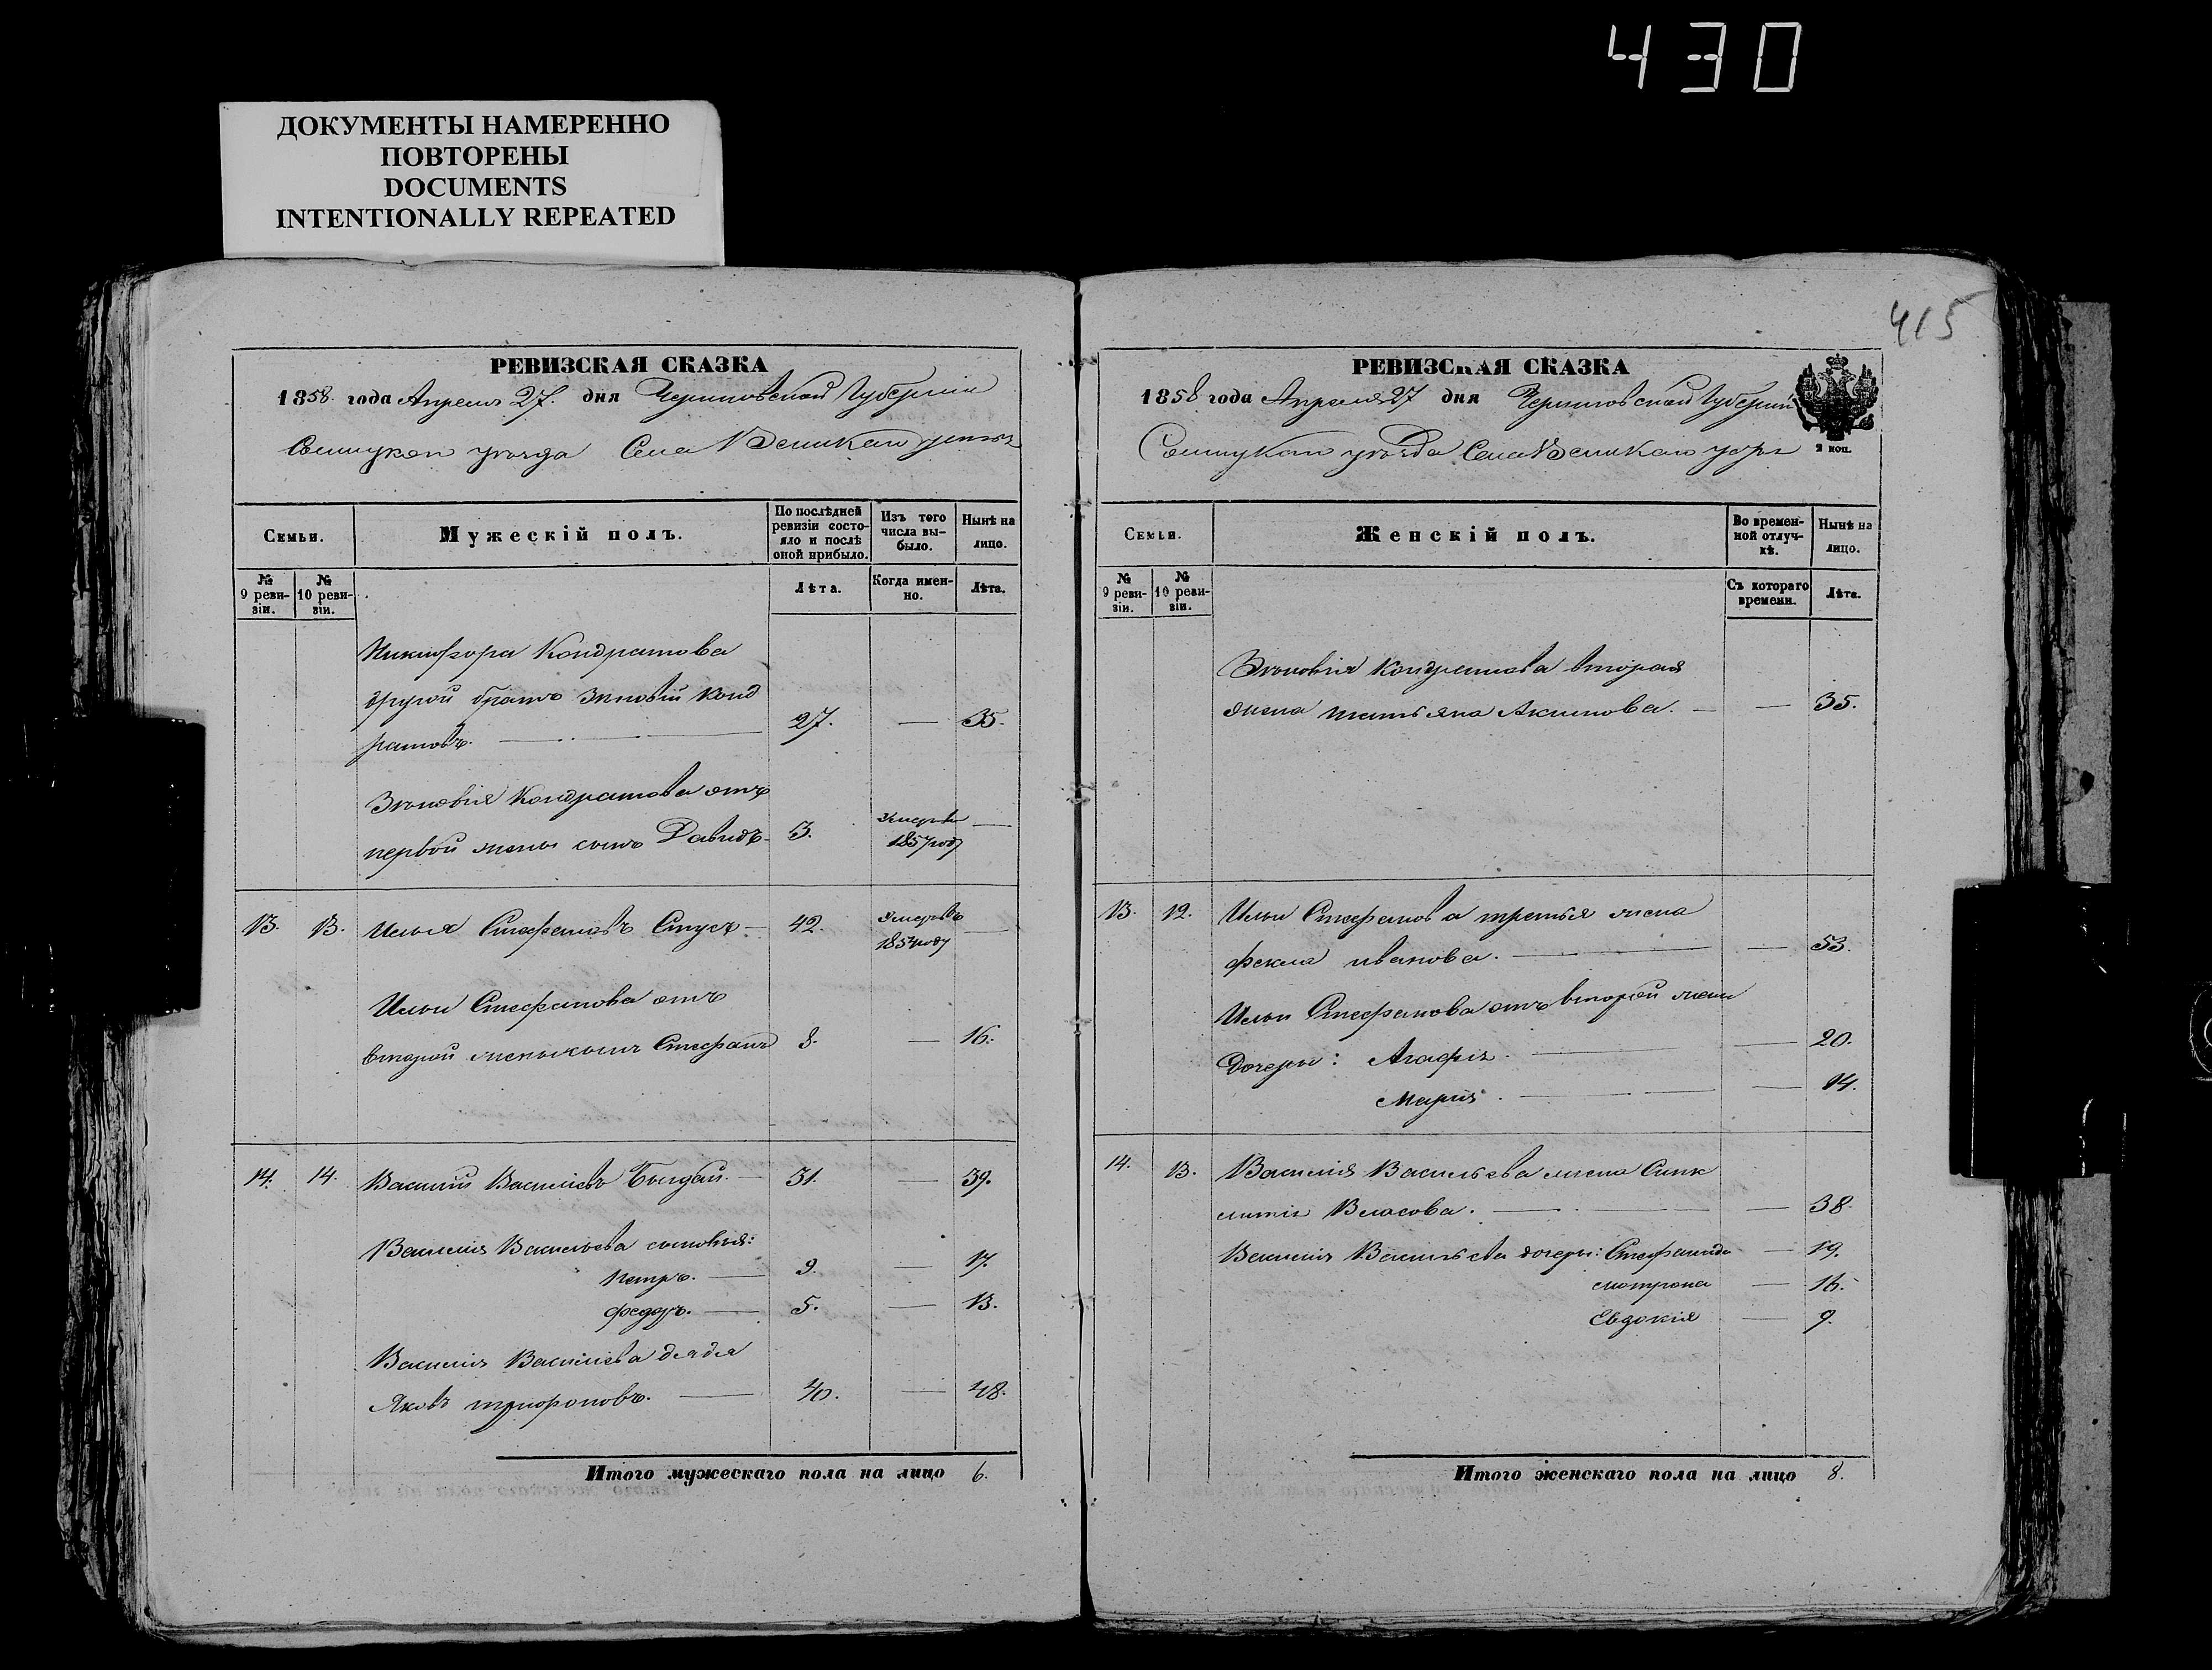 430
ДОКУМЕНТЫ НАМЕРЕННО
ПОВТОРЕНЫ
DOCUMENTS
INTENTIONALLY REPEATED
РЕВИЗСКАЯ СКАЗКА
1858 года Апреля 27. дня Черниговской Губернии
уезда Села Великаго
Семьи.
Мужескій полъ.
По послѣдней ревизіи состояло и послѣ оной прибыло.
Изъ того числа выбыло.
Нынѣ на лицо.
№ 9 ревизіи.
№ 10 ревизіи.
Лѣта.
Когда именно.
Лѣта.
Никифора Кондратова
другой братъ Зиновій Конд
ратовъ. 27. — 35.
Зѣновія Кондратова отъ
первой жены сынъ Давидъ 3. умеръ 1857 году —
13. 13. Илья Стефановъ Стусъ — 42. умеръ 1854 году —
Ильи Стефанова отъ
второй жены сынъ Стефанъ 8. — 16.
14. 14. Василий Василіевъ — 31. — 39.
Василія Васильева сыновья:
Петръ. — 9. — 17.
Федоръ. — 5. — 13.
Василія Василіева дядя
Яковъ 40. — 48.
Итого мужескаго пола на лицо 6.
415
РЕВИЗСКАЯ СКАЗКА
1858 года Апреля 27 дня Черниговской Губернии
2 коп.
уезда Села Великаго
Семьи.
Женскій полъ.
Во временной отлучкѣ.
Нынѣ на лицо.
№ 9 ревизіи.
№ 10 ревизіи.
Съ котораго времени.
Лѣта.
Зѣновія Кондратова вторая
жена Татьяна Акимова. — — 35.
13. 12. Ильи Стефанова третья жена
Фекла Иванова. — — 53.
Ильи Стефанова отъ второй жены
Дочери: Агафія. — — 20.
Марія. — — 14.
14. 13. Василія Васильева жена Синк
литія Власова. — — 38.
Василія Васильева дочери: Стефанида — 19.
Мотрона — 16.
Евдокія — 9.
Итого женскаго пола на лицо 8.